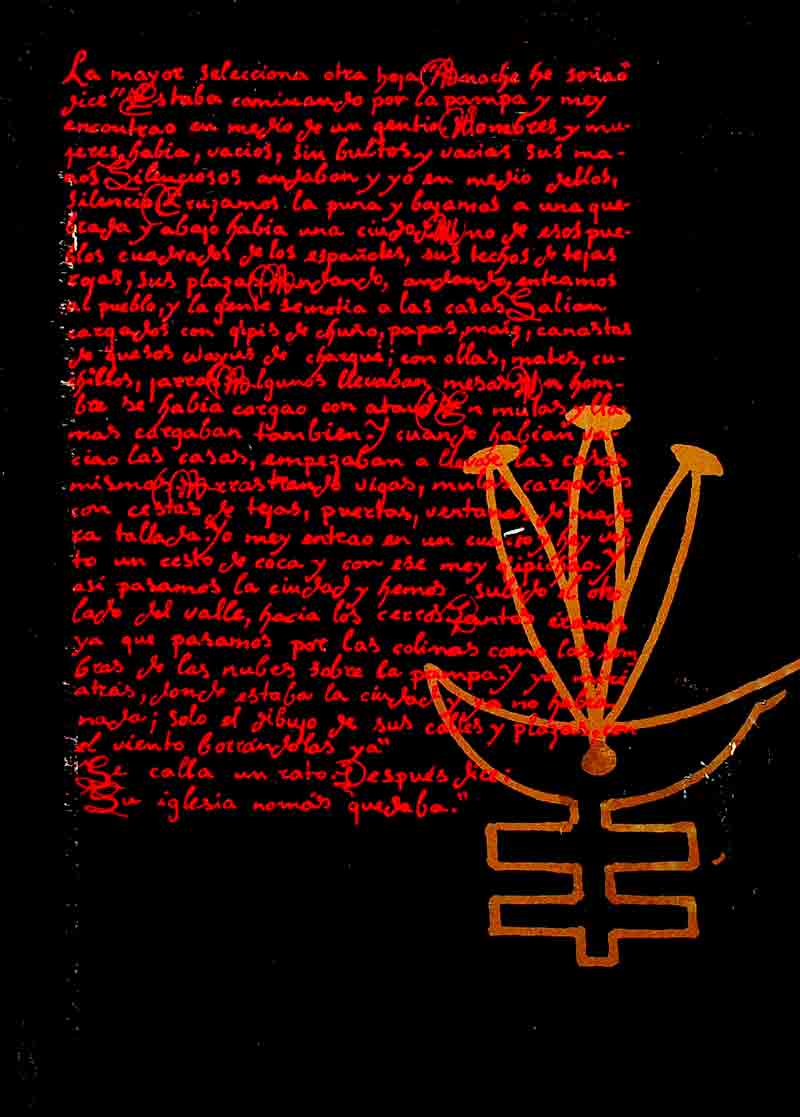 La mayor selecciona otra hoja. "Anoche he soñao"
dice "Estaba caminando por la pampa y mey
encontrao en medio de un gentio. Hombres y mu-
jeres había, vacíos, sin bultos y vacías sus ma-
nos. Silenciosos andaban y yo en medio dellos,
silencio. Cruzamos la puna y bajamos a una que-
brada y abajo había una ciudad. Uno de esos pue-
blos cuadrados de los españoles, sus techos de tejas
rojas, sus plazas. Andando, andando, entramos
al pueblo, y la gente se metia a las casas. Salian
cargados con qipis de chuño, papas, maiz, canastas
de quesos wayus de charque; con ollas, mates, cu-
chillos, jarros. Algunos llevaban mesas. Un hom-
bre se había cargao con ataud. En mulas y lla-
mas cargaban también. Y cuando habian va-
ciao las casas, empezaban a llevarse las casas
mismas. Arrastrando vigas, mulas cargados
con cestas de tejas, puertas, ventanas de made
ra tallada. Yo mey entrao en un cuarto y hey vis
to un cesto de coca y con ese mey qipichao. Y
así pasamos la ciudad y hemos subido el otro
lado del valle, hacia los cerros. Tantos éramos
ya que pasamos por las colinas como las som
bras de las nubes sobre la pampa. Y yo miré
atrás, donde estaba la ciudad y ya no había
nada; solo el dibujo de sus calles y plazas
el viento borrándolas ya"
Se calla un rato. Después dice:
"Su iglesia nomás quedaba."